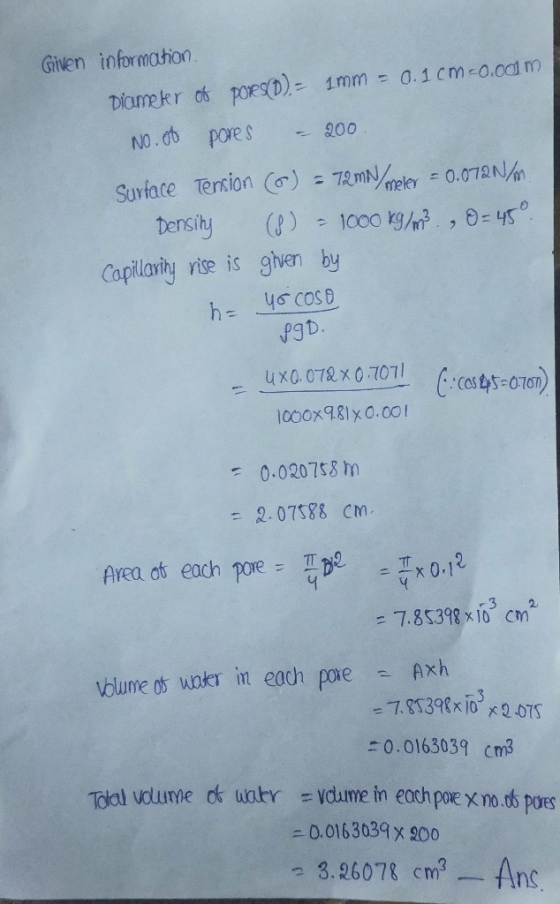 Given information.
Diameter of pores(D) = 1mm = 0.1cm=0.001m
No. of pores = 200
Surface Tension (σ) = 72mN/meter = 0.072N/m
Density (ρ) = 1000 kg/m³., θ=45°
Capillarity rise is given by
h= 4σ cosθ / ρgD.
= 4×0.072×0.7071 / 1000×9.81×0.001 (∵cos45=0.7071)
= 0.020758m
= 2.07588 cm.
Area of each pore = π/4 D² = π/4 × 0.1²
= 7.85398×10⁻³ cm²
Volume of water in each pore = A×h
= 7.85398×10⁻³ ×2.075
=0.0163039 cm³
Total volume of water = volume in each pore × no. of pores
= 0.0163039 × 200
= 3.26078 cm³ — Ans.